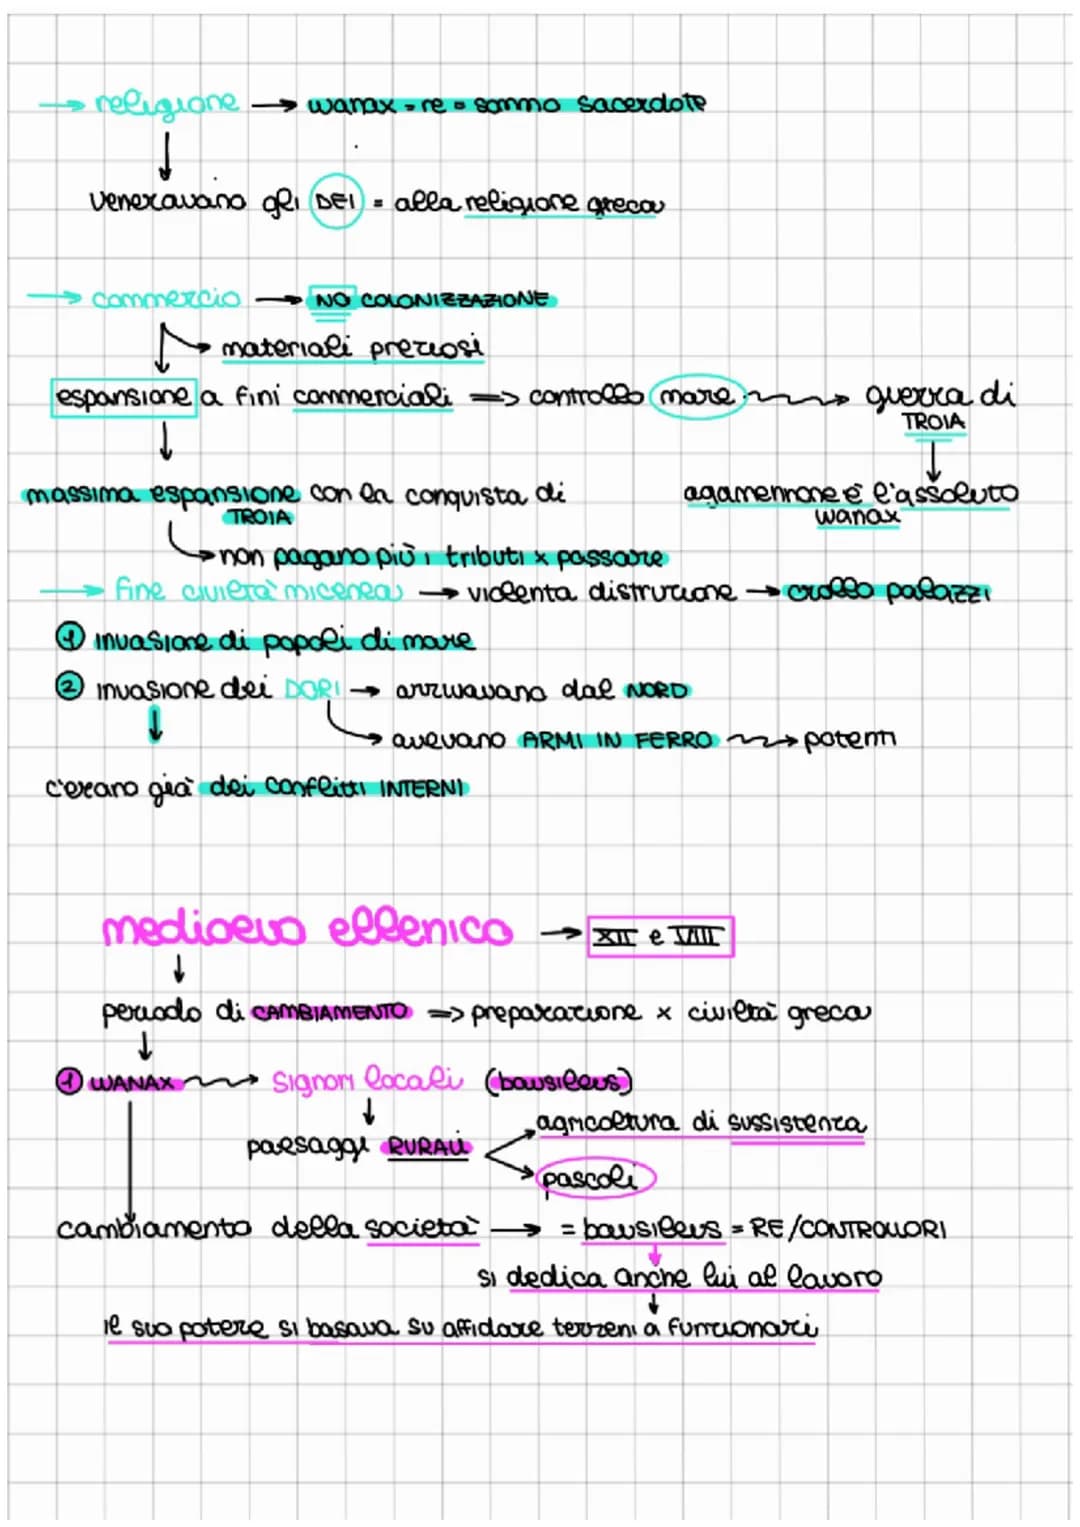 → religione → wanax = re = sommo sacerdote
↓
veneravano gli DEI = alla religione greca
→ commercio → NO COLONIZZAZIONE
→ materiali preziosi
espansione a fini commerciali => controllo mare → guerra di TROIA
↓
massima espansione con la conquista di TROIA
agamennone è l'assoluto wanax
→ non pagano più i tributi x passare
→ fine civiltà micenea → violenta distruzione → crollo palazzi
① invasione di popoli di mare
② invasione dei DORI → arrivavano dal NORD
→ avevano ARMI IN FERRO → potenti
c'erano già dei conflitti INTERNI
medioevo ellenico → XII e VIII
↓
periodo di CAMBIAMENTO => preparazione x civiltà greca
↓
① WANAX → signori locali (basileus)
↓
paesaggi RURALI
agricoltura di sussistenza
pascoli
cambiamento della società → = basileus = RE/CONTROLLORI
si dedica anche lui al lavoro
↓
il suo potere si basava su affidare terreni a funzionari